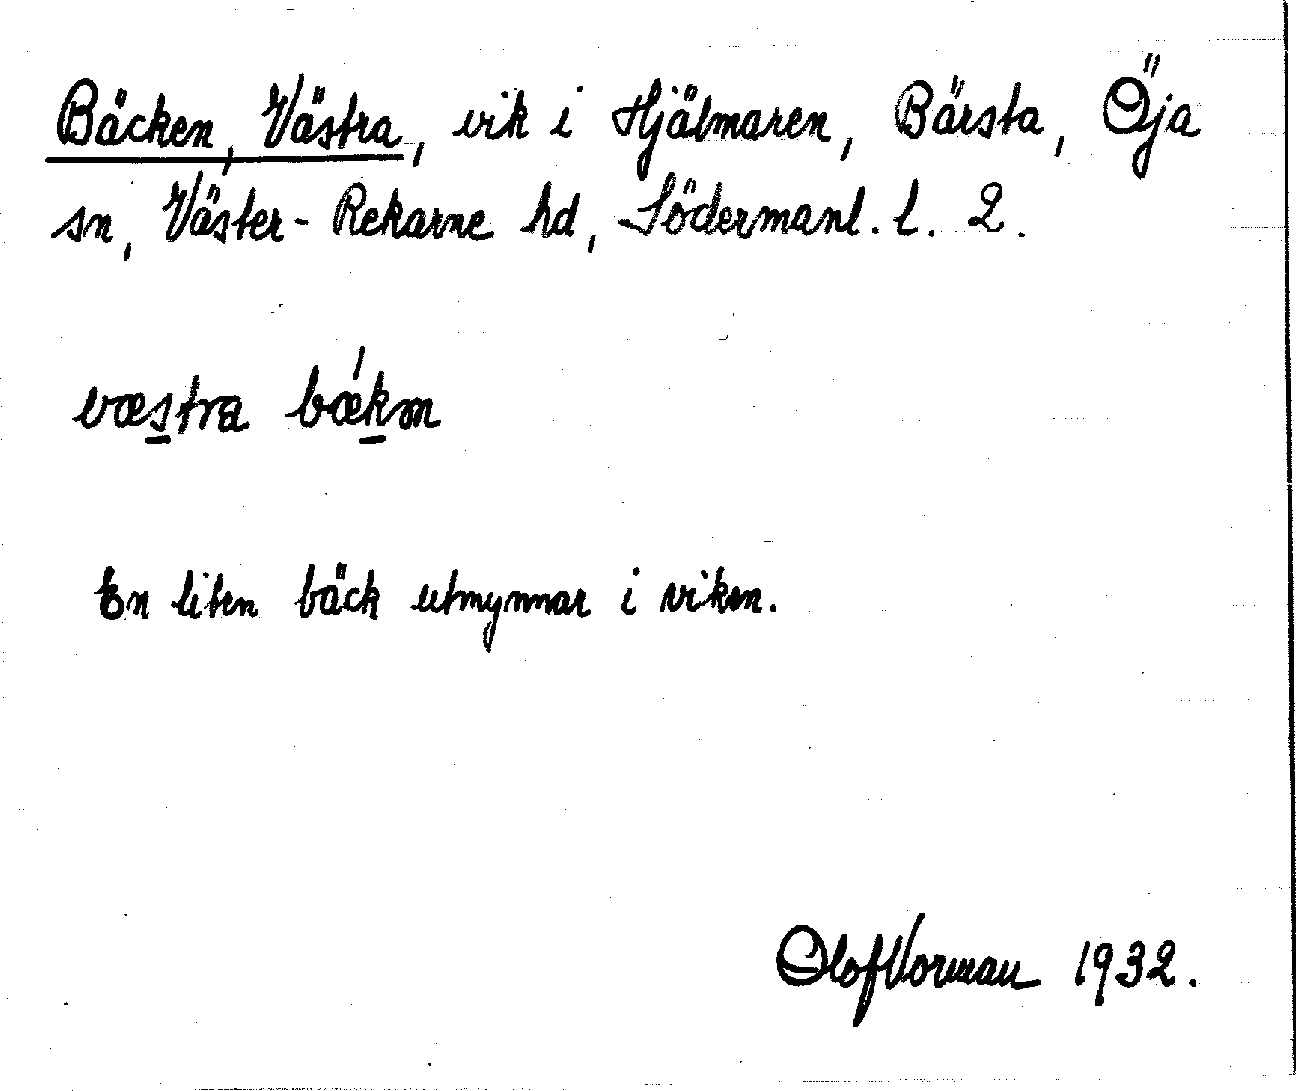 Bäcken, Västra, vik i Hjälmaren, Bärsta, Öja
sn, Väster-Rekarne hd, Södermanl. l. 2.
væstra bǽkm
En liten bäck utmynnar i viken.
Olof Vorman 1932.